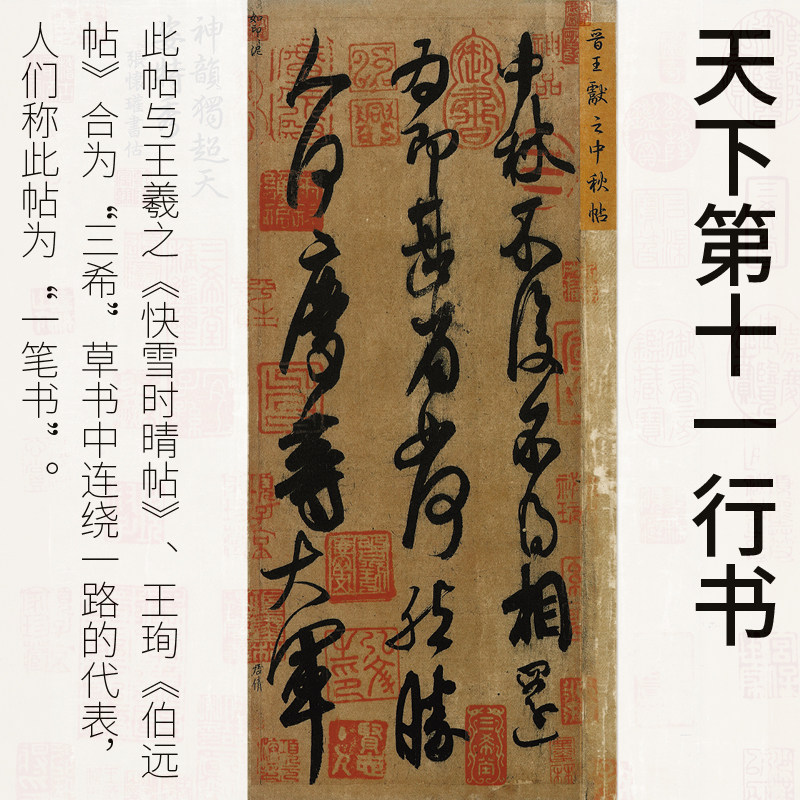 天下第十一行书
晉王獻之中秋帖
中秋不復不得相還
為即甚省如何然勝
人何慶等大軍
此帖与王羲之《快雪时晴帖》、王珣《伯远
帖》合为“三希”草书中连绕一路的代表，
人们称此帖为“一笔书”。
神韻獨超天